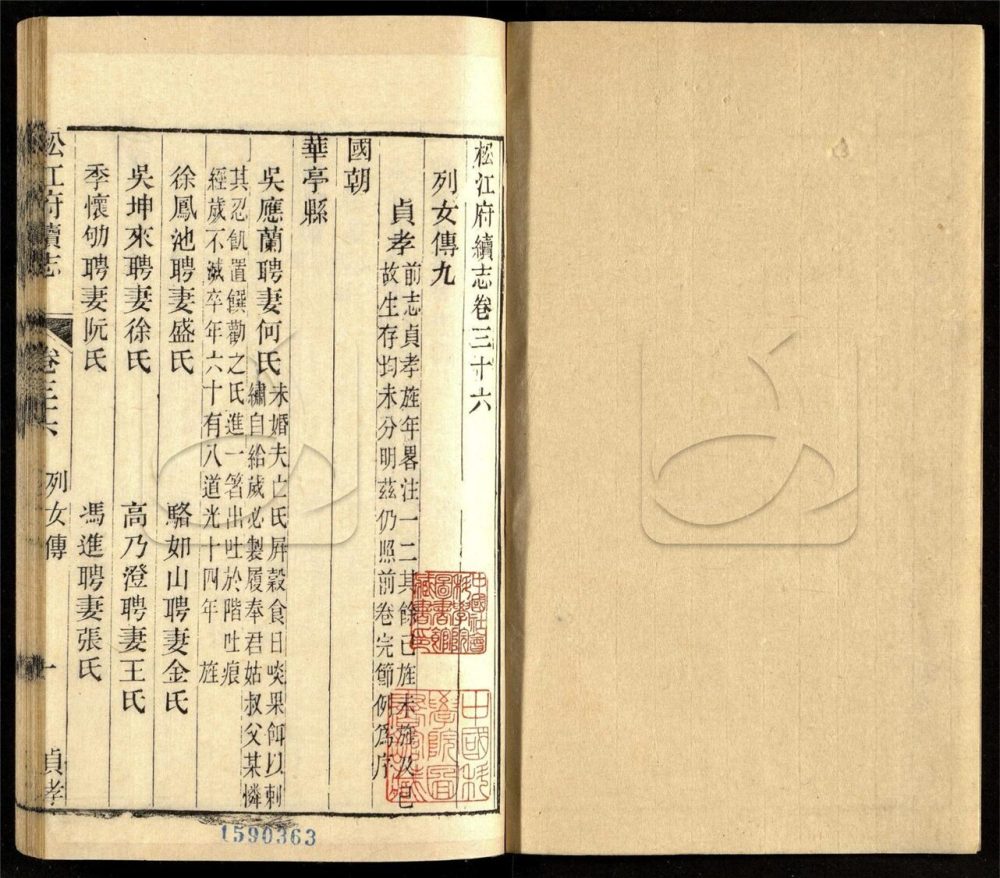 松江府續志卷三十六
列女傳九
貞孝
前志貞孝旌年畧注一二其餘已旌未旌及已
故生存均未分明茲仍照前卷完節例爲序
國朝
華亭縣
吳應蘭聘妻何氏
未婚夫亡氏屏穀食日啖果仰以刺
繡自給歲必製履奉君姑叔父某憐
其忍飢置饌勸之氏進一箸出吐於階吐痕
經歲不滅卒年六十有八道光十四年 旌
徐鳳池聘妻盛氏 駱如山聘妻金氏
吳坤來聘妻徐氏 高乃澄聘妻王氏
季懷劬聘妻阮氏 馮進聘妻張氏
松江府續志 卷三十六 列女傳 一 貞孝
中國社會科學院圖書館藏書印
1590363